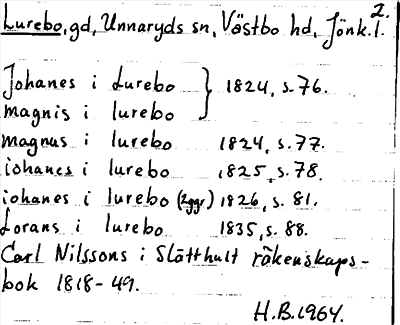 2.
Lurebo, gd, Unnaryds sn, Västbo hd, Jönk.l.
Johanes i Lurebo } 1824, s.76.
magnis i lurebo
magnus i lurebo 1824, s.77.
iohanes i lurebo 1825, s.78.
iohanes i lurebo (2ggr) 1826, s. 81.
Lorans i lurebo 1835, s. 88.
Carl Nilssons i Slätthult räkenskaps-
bok 1818-49.
H.B.1964.